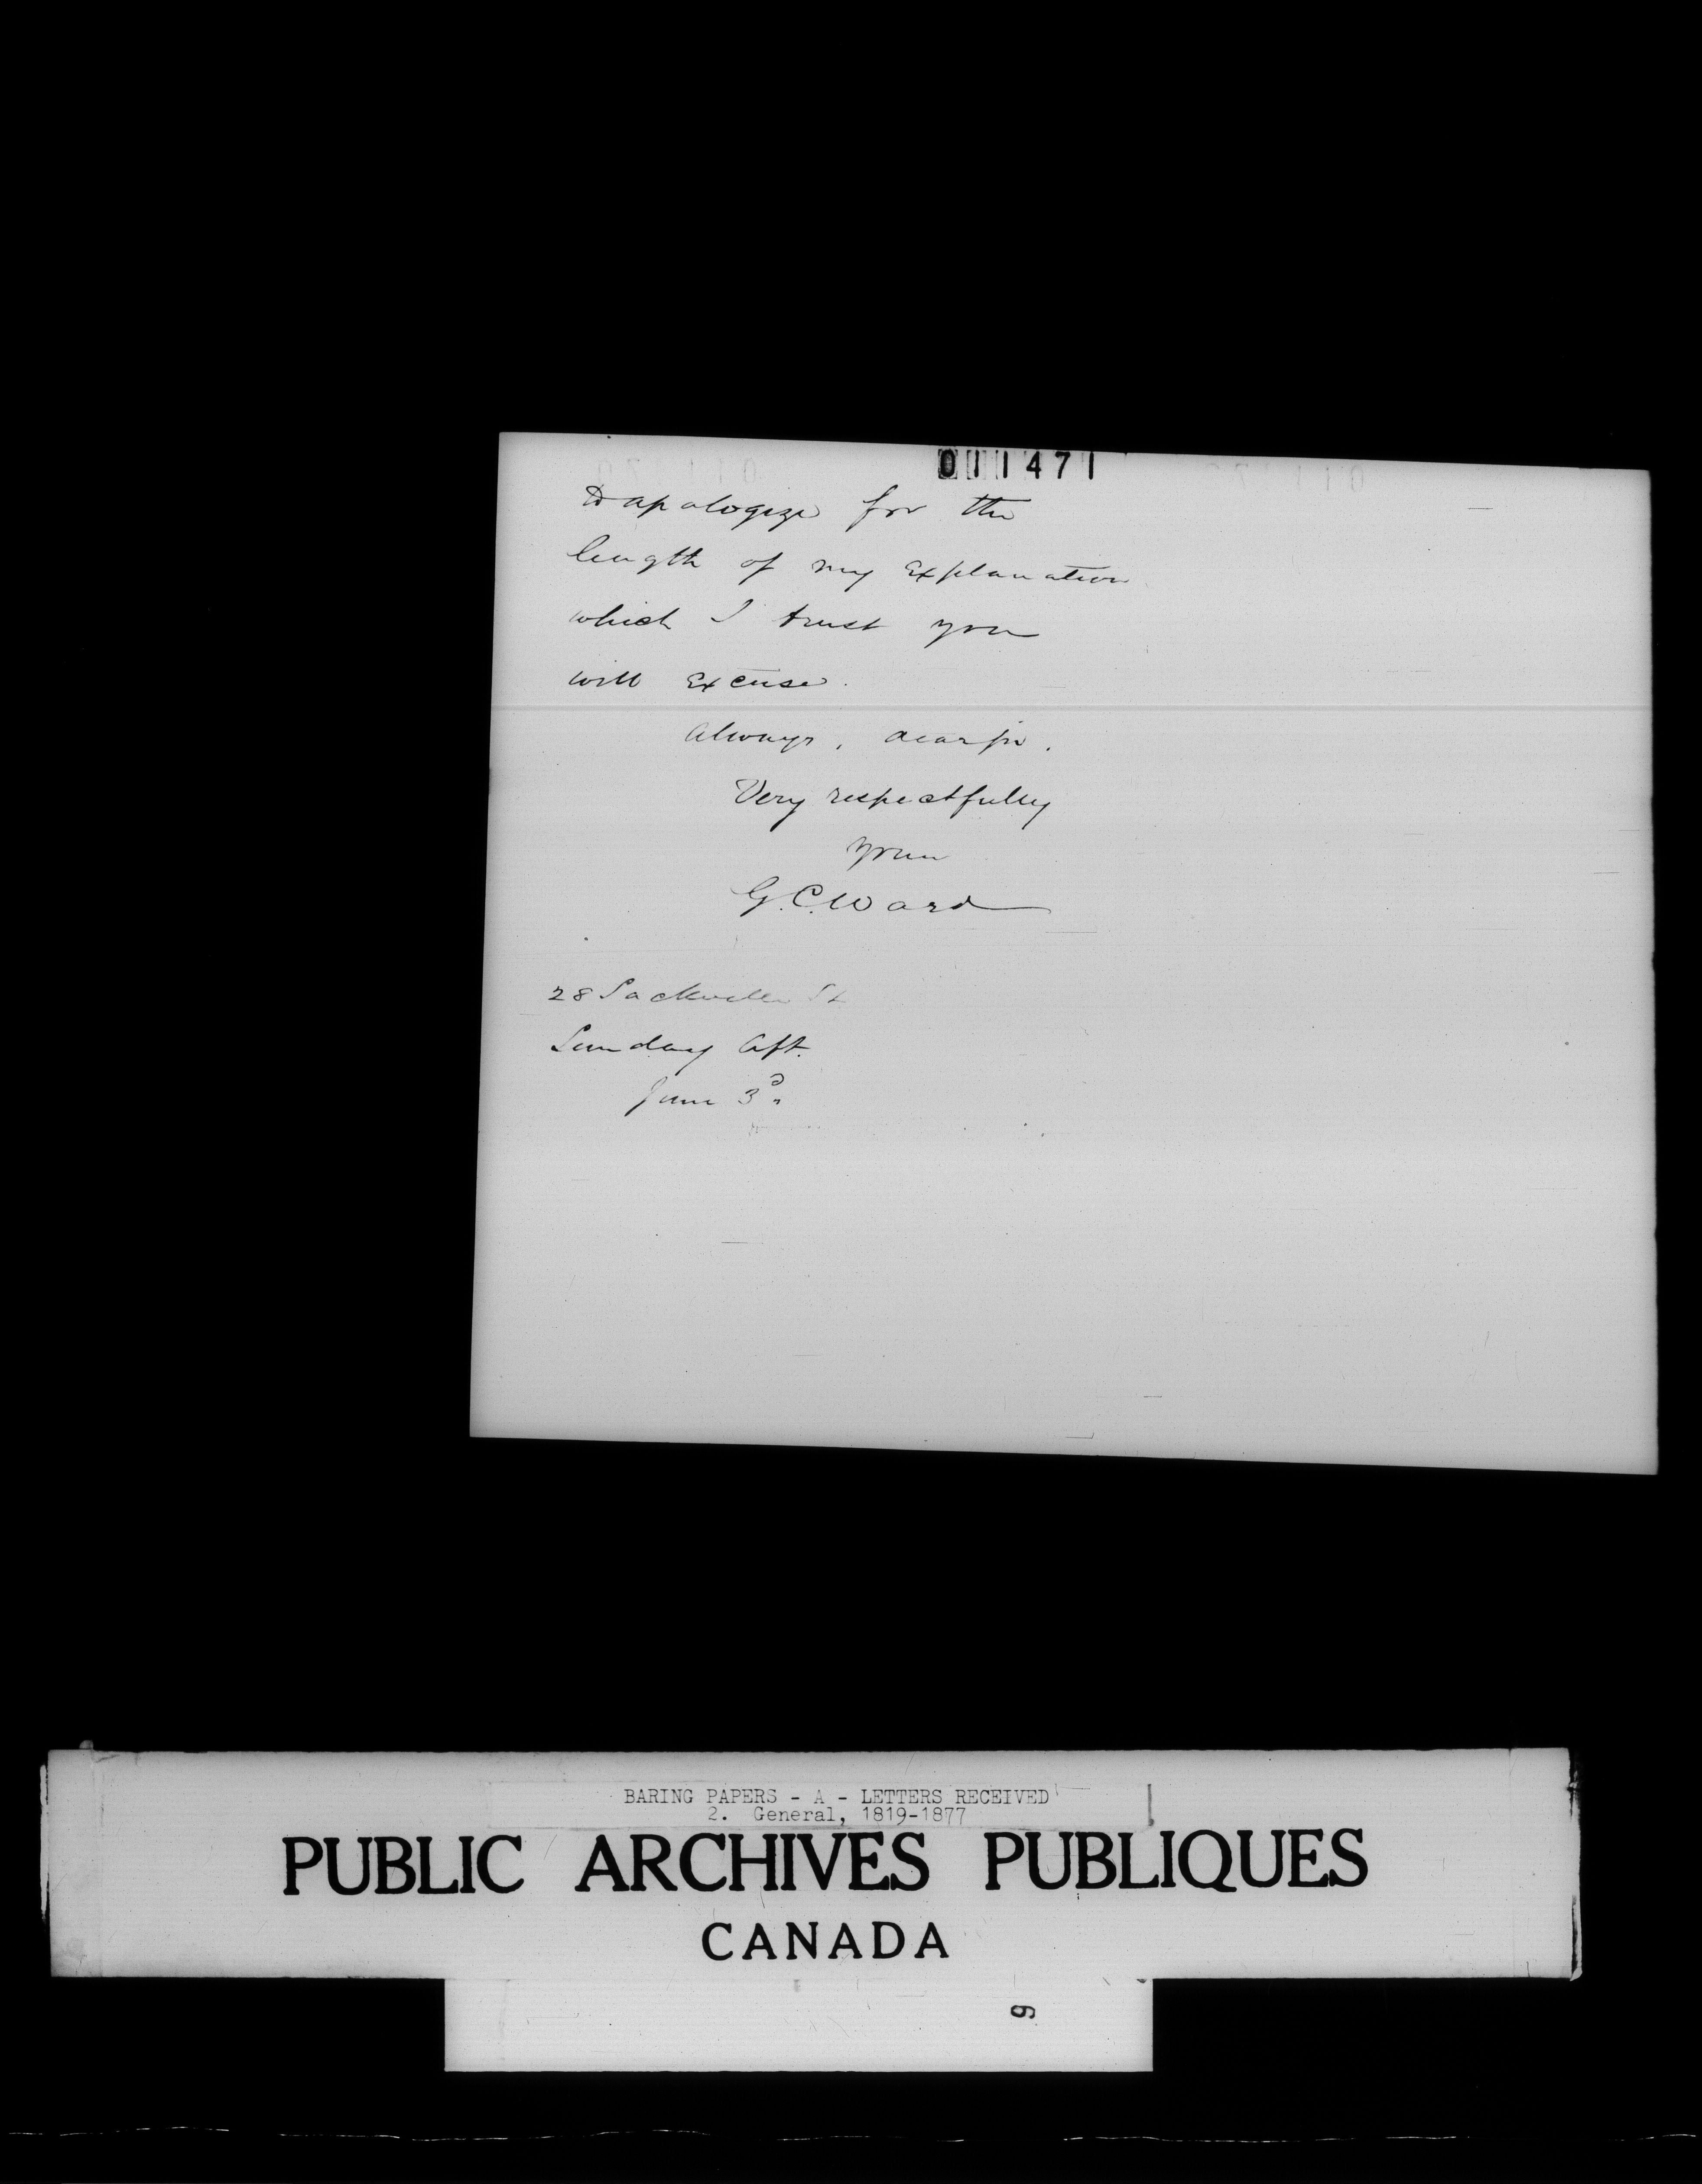 011471
to apologize for the
length of my explanation
which I trust you
will excuse.
Always, dear sir,
Very respectfully
yours
G.C. Ward
28 Sackville St
Sunday Aft.
June 3d.
BARING PAPERS - A - LETTERS RECEIVED
2. General, 1819-1877
PUBLIC ARCHIVES PUBLIQUES
CANADA
9